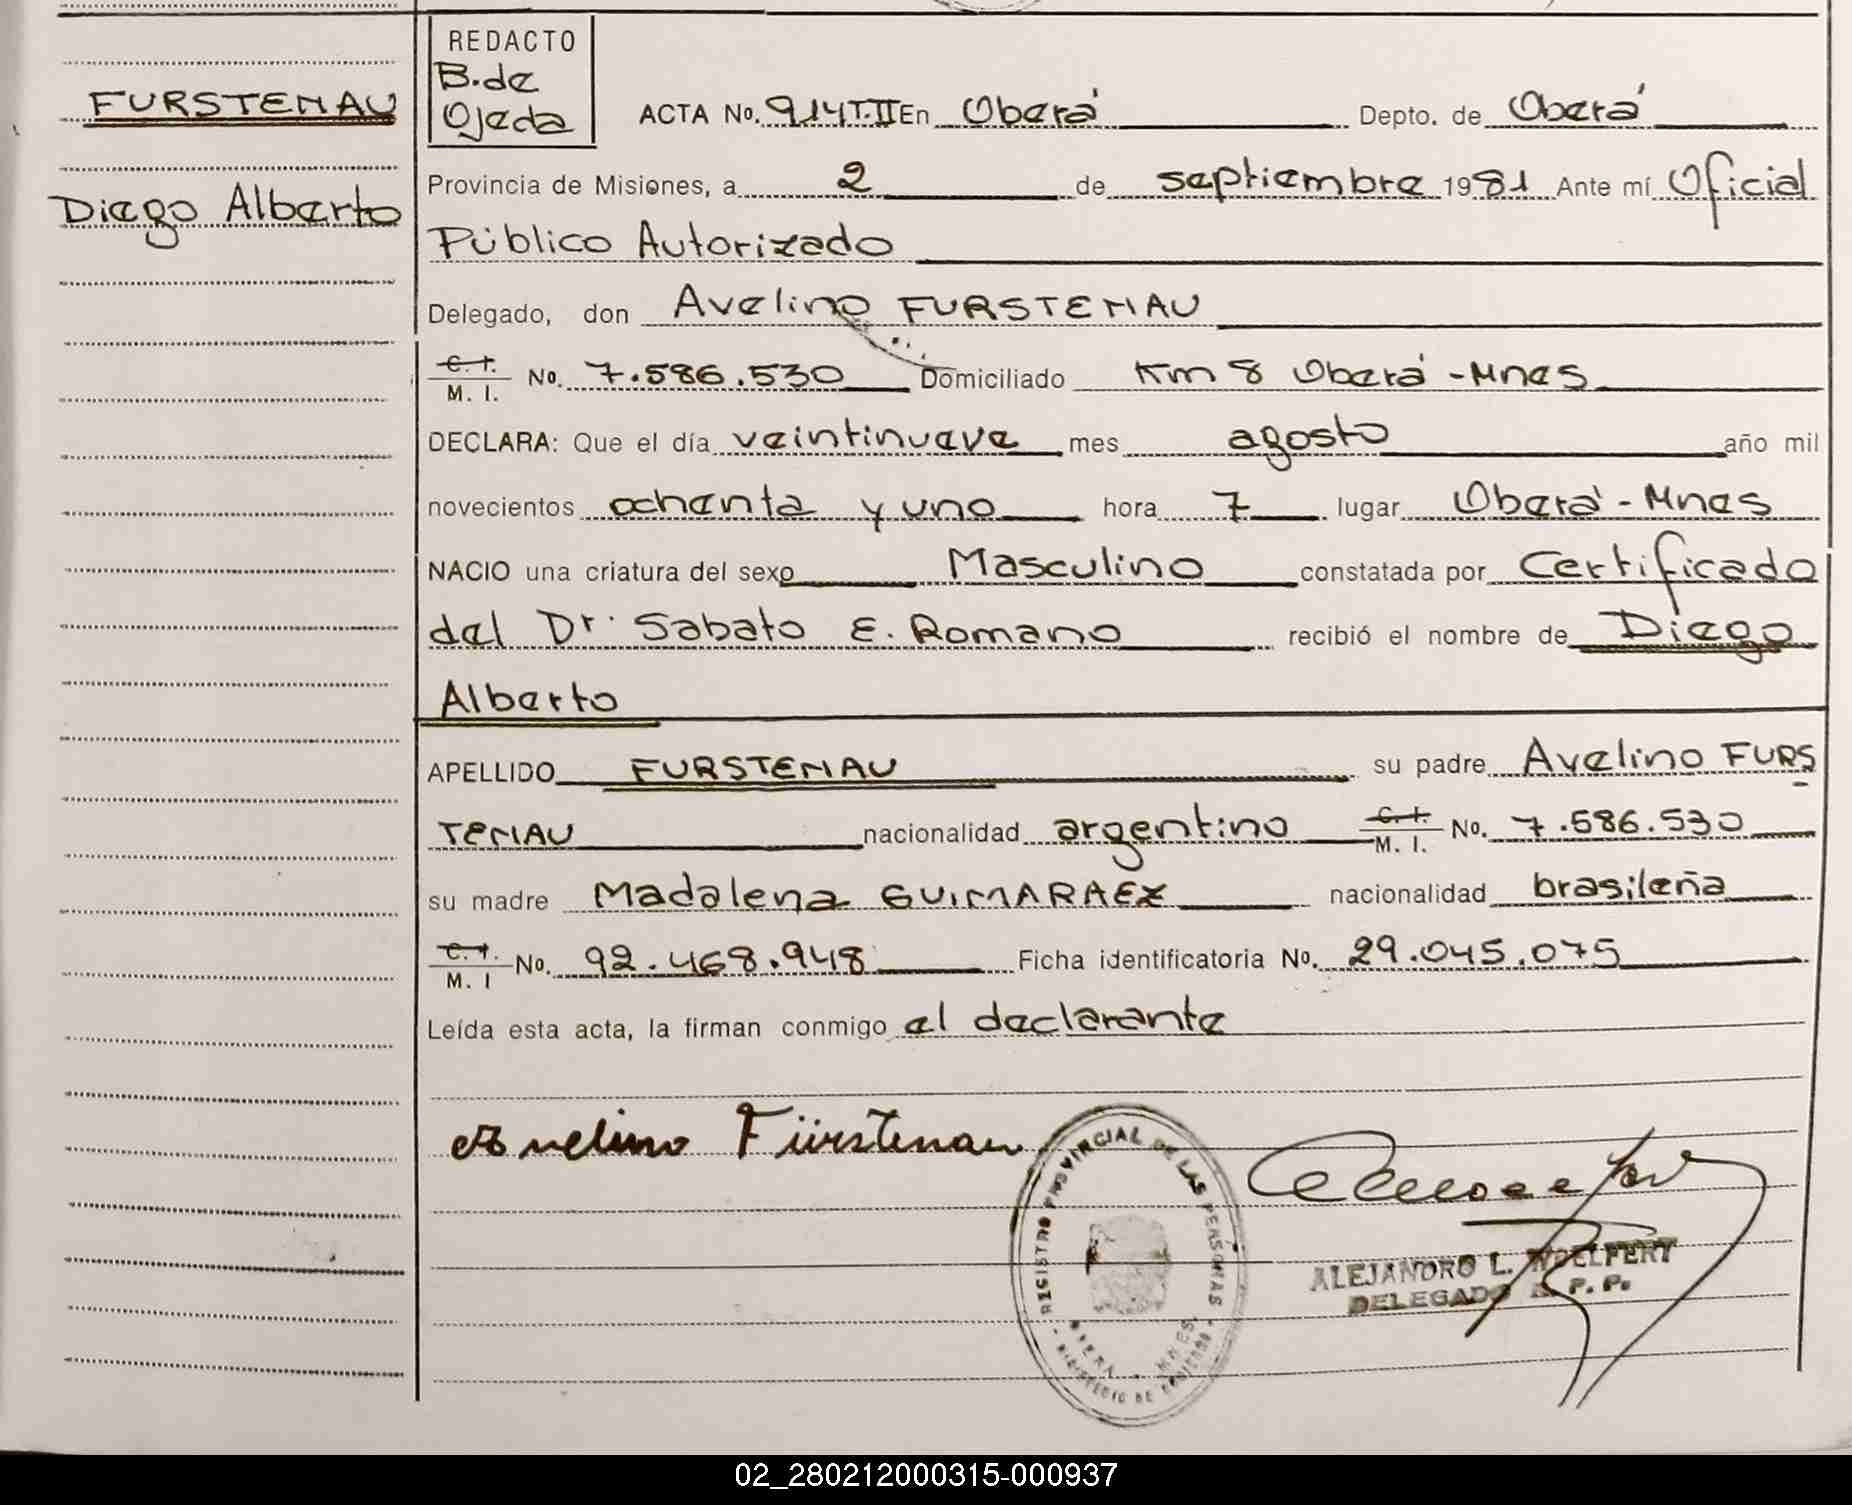 FURSTENAU
Diego Alberto
REDACTO
B. de
Ojeda
ACTA No. 914 T.II En Oberá Depto. de Oberá
Provincia de Misiones, a 2 de septiembre 1981 Ante mí Oficial
Público Autorizado
Delegado, don Avelino FURSTENAU
C. I.
M. I. No. 7.586.530 Domiciliado Km 8 Oberá - Mnes
DECLARA: Que el día veintinueve mes agosto año mil
novecientos ochenta y uno hora 7 lugar Oberá - Mnes
NACIO una criatura del sexo Masculino constatada por Certificado
del Dr. Sabato E. Romano recibió el nombre de Diego
Alberto
APELLIDO FURSTENAU su padre Avelino FURS
TENAU nacionalidad argentino C. I. M. I. No. 7.586.530
su madre Madalena GUIMARAEZ nacionalidad brasileña
C. I.
M. I No. 92.468.948 Ficha identificatoria No. 29.045.075
Leída esta acta, la firman conmigo el declarante
Avelino Fürstenau
REGISTRO PROVINCIAL DE LAS PERSONAS
OBERA - MNES.
MINISTERIO DE GOBIERNO
ALEJANDRO L. WOELFERT
DELEGADO R. P. P.
02_280212000315-000937